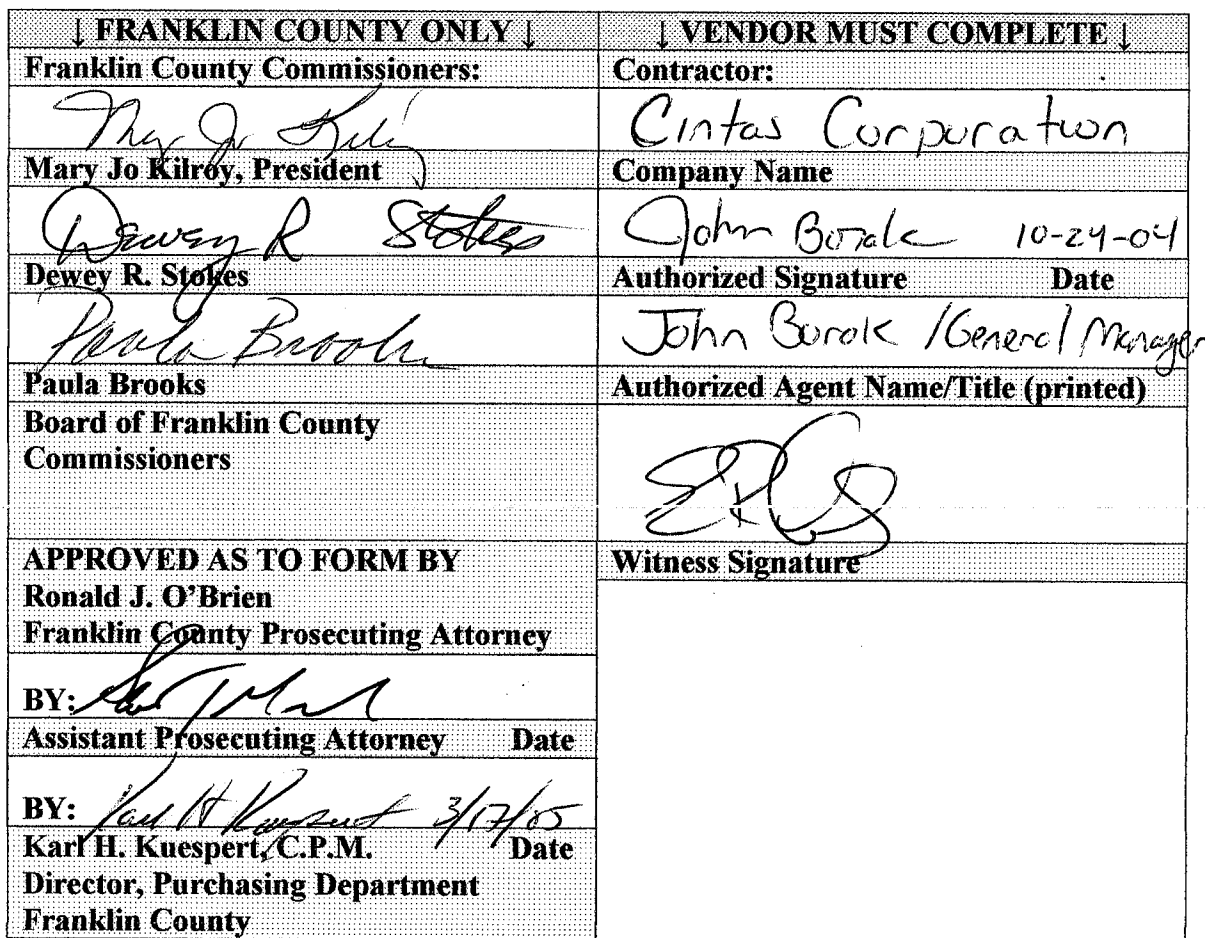 ↓ FRANKLIN COUNTY ONLY ↓
Franklin County Commissioners:
Mary Jo Kilroy, President
Dewey R Stokes
Dewey R. Stokes
Paula Brooks
Paula Brooks
Board of Franklin County
Commissioners
APPROVED AS TO FORM BY
Ronald J. O'Brien
Franklin County Prosecuting Attorney
BY:
Assistant Prosecuting Attorney Date
BY: Karl H Kuespert 3/17/05
Karl H. Kuespert, C.P.M. Date
Director, Purchasing Department
Franklin County
↓ VENDOR MUST COMPLETE ↓
Contractor:
Cintas Corporation
Company Name
John Borak 10-24-04
Authorized Signature Date
John Borak / General Manager
Authorized Agent Name/Title (printed)
Witness Signature